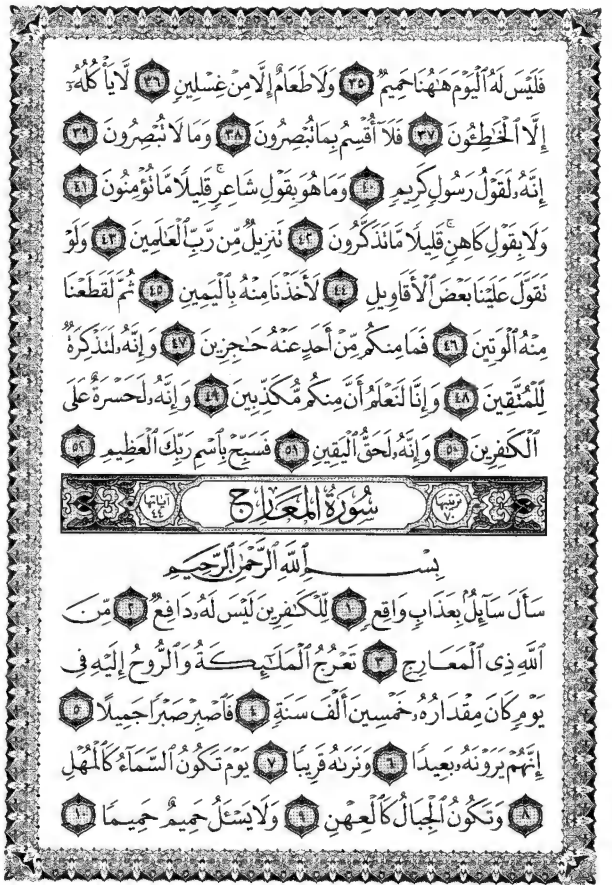 فَلَيْسَ لَهُ ٱلْيَوْمَ هَـٰهُنَا حَمِيمٌ ٣٥ وَلَا طَعَامٌ إِلَّا مِنْ غِسْلِينٍ ٣٦ لَّا يَأْكُلُهُۥٓ
إِلَّا ٱلْخَـٰطِـُٔونَ ٣٧ فَلَآ أُقْسِمُ بِمَا تُبْصِرُونَ ٣٨ وَمَا لَا تُبْصِرُونَ ٣٩
إِنَّهُۥ لَقَوْلُ رَسُولٍ كَرِيمٍ ٤٠ وَمَا هُوَ بِقَوْلِ شَاعِرٍ ۚ قَلِيلًا مَّا تُؤْمِنُونَ ٤١
وَلَا بِقَوْلِ كَاهِنٍ ۚ قَلِيلًا مَّا تَذَكَّرُونَ ٤٢ تَنزِيلٌ مِّن رَّبِّ ٱلْعَـٰلَمِينَ ٤٣ وَلَوْ
تَقَوَّلَ عَلَيْنَا بَعْضَ ٱلْأَقَاوِيلِ ٤٤ لَأَخَذْنَا مِنْهُ بِٱلْيَمِينِ ٤٥ ثُمَّ لَقَطَعْنَا
مِنْهُ ٱلْوَتِينَ ٤٦ فَمَا مِنكُم مِّنْ أَحَدٍ عَنْهُ حَـٰجِزِينَ ٤٧ وَإِنَّهُۥ لَتَذْكِرَةٌ
لِّلْمُتَّقِينَ ٤٨ وَإِنَّا لَنَعْلَمُ أَنَّ مِنكُم مُّكَذِّبِينَ ٤٩ وَإِنَّهُۥ لَحَسْرَةٌ عَلَى
ٱلْكَـٰفِرِينَ ٥٠ وَإِنَّهُۥ لَحَقُّ ٱلْيَقِينِ ٥١ فَسَبِّحْ بِٱسْمِ رَبِّكَ ٱلْعَظِيمِ ٥٢
ترتيبها ٧٠ سُورَةُ المَعَارِج آياتها ٤٤
بِسْمِ ٱللَّهِ ٱلرَّحْمَـٰنِ ٱلرَّحِيمِ
سَأَلَ سَآئِلٌۢ بِعَذَابٍ وَاقِعٍ ١ لِّلْكَـٰفِرِينَ لَيْسَ لَهُۥ دَافِعٌ ٢ مِّنَ
ٱللَّهِ ذِى ٱلْمَعَارِجِ ٣ تَعْرُجُ ٱلْمَلَـٰٓئِكَةُ وَٱلرُّوحُ إِلَيْهِ فِى
يَوْمٍ كَانَ مِقْدَارُهُۥ خَمْسِينَ أَلْفَ سَنَةٍ ٤ فَٱصْبِرْ صَبْرًا جَمِيلًا ٥
إِنَّهُمْ يَرَوْنَهُۥ بَعِيدًا ٦ وَنَرَىٰهُ قَرِيبًا ٧ يَوْمَ تَكُونُ ٱلسَّمَآءُ كَٱلْمُهْلِ
٨ وَتَكُونُ ٱلْجِبَالُ كَٱلْعِهْنِ ٩ وَلَا يَسْـَٔلُ حَمِيمٌ حَمِيمًا ١٠